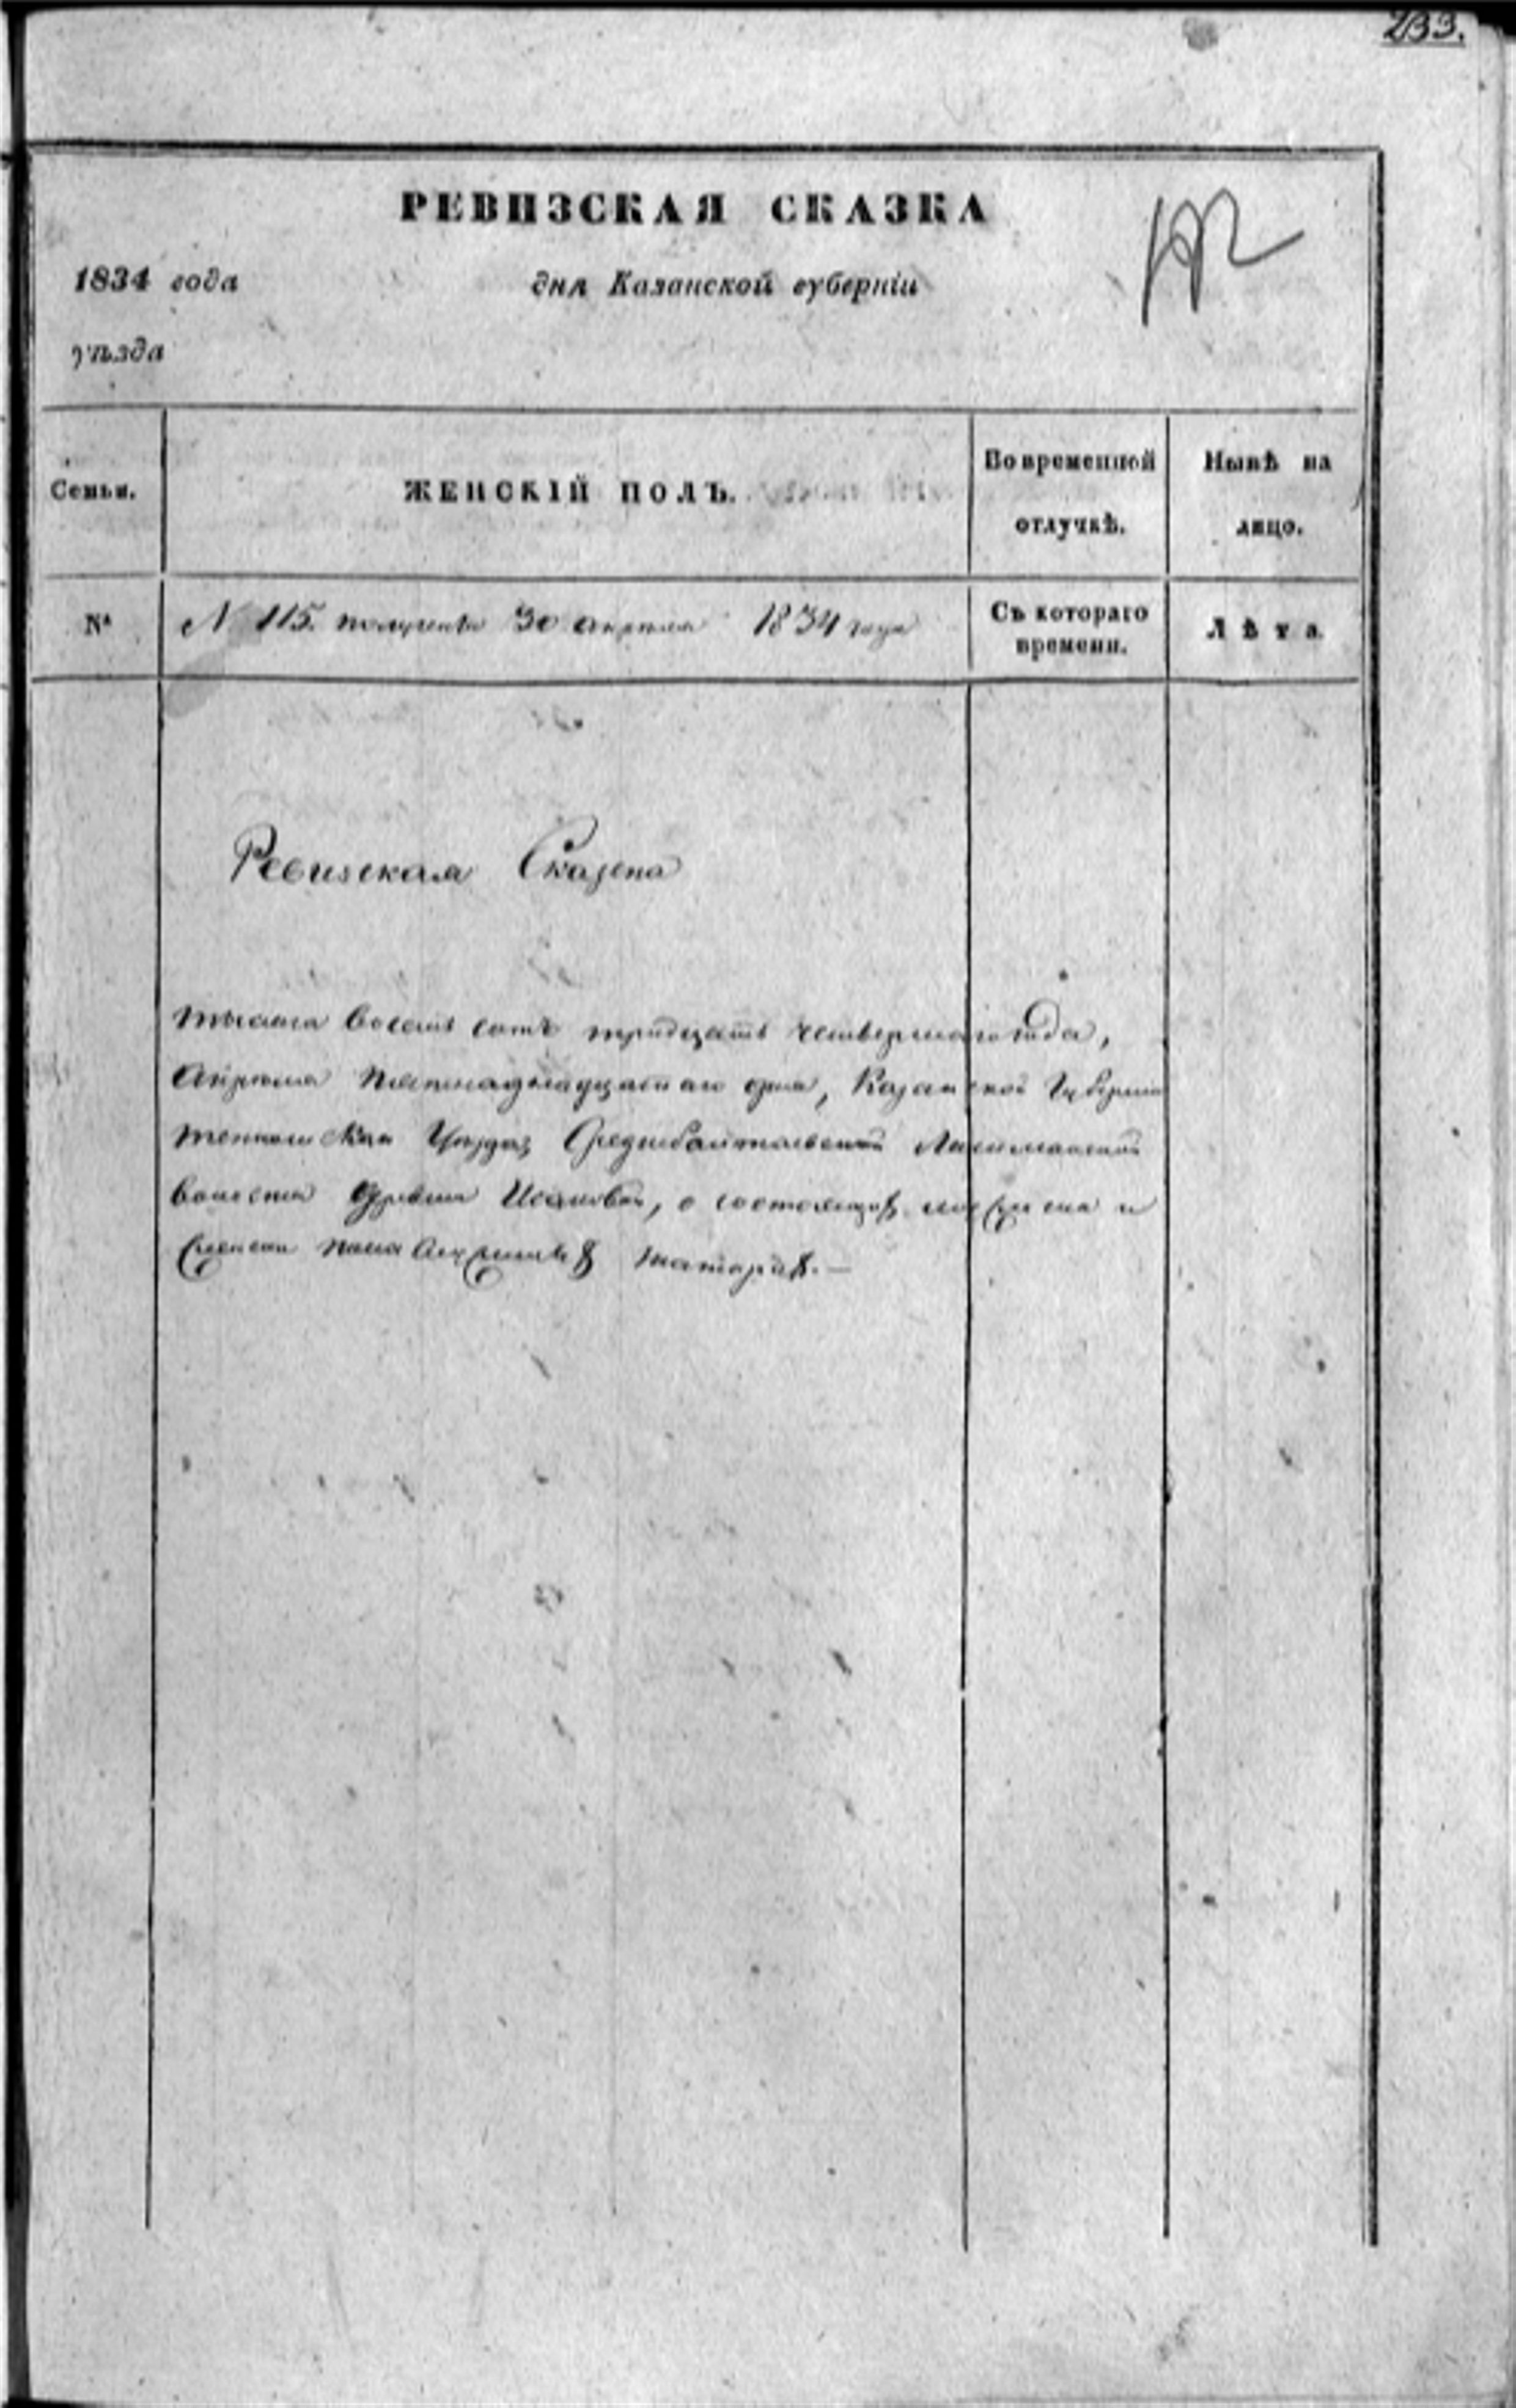 233.
РЕВИЗСКАЯ СКАЗКА
1834 года дня Казанской губерніи
уѣзда
Семьи. ЖЕНСКІЙ ПОЛЪ. Во временной отлучкѣ. Нынѣ на лицо.
№ N 115. полученъ 30 апреля 1834 года Съ котораго времени. Лѣта.
Ревизская Сказка
тысяча восемь сотъ тридцать четвертаго года,
Апреля пятнадцатаго дня, Казанской Губернии
Уезда
волости деревни о состоящих мужеска и
женска пола татарах.—